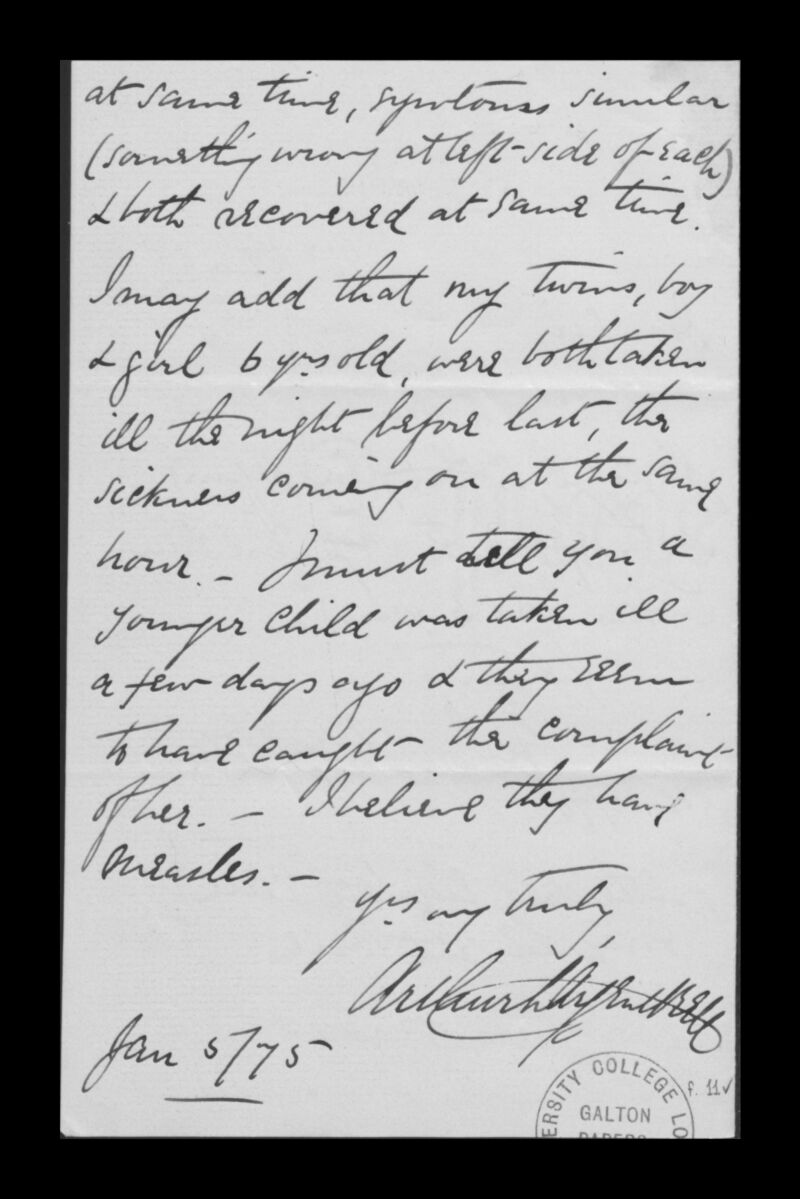 at same time, symtoms similar
(something wrong at left-side of each)
& both recovered at same time.
I may add that my twins, boy
& girl 6 yrs old, were both taken
ill the night before last, the
sickness coming on at the same
hour. - I must tell you a
younger child was taken ill
a few days ago & they seem
to have caught the complaint
of her. - I believe they have
measles. -
Yrs vy truly,
Jan 5/75
f. 11v
ERSITY COLLEGE LO
GALTON
PAPERS